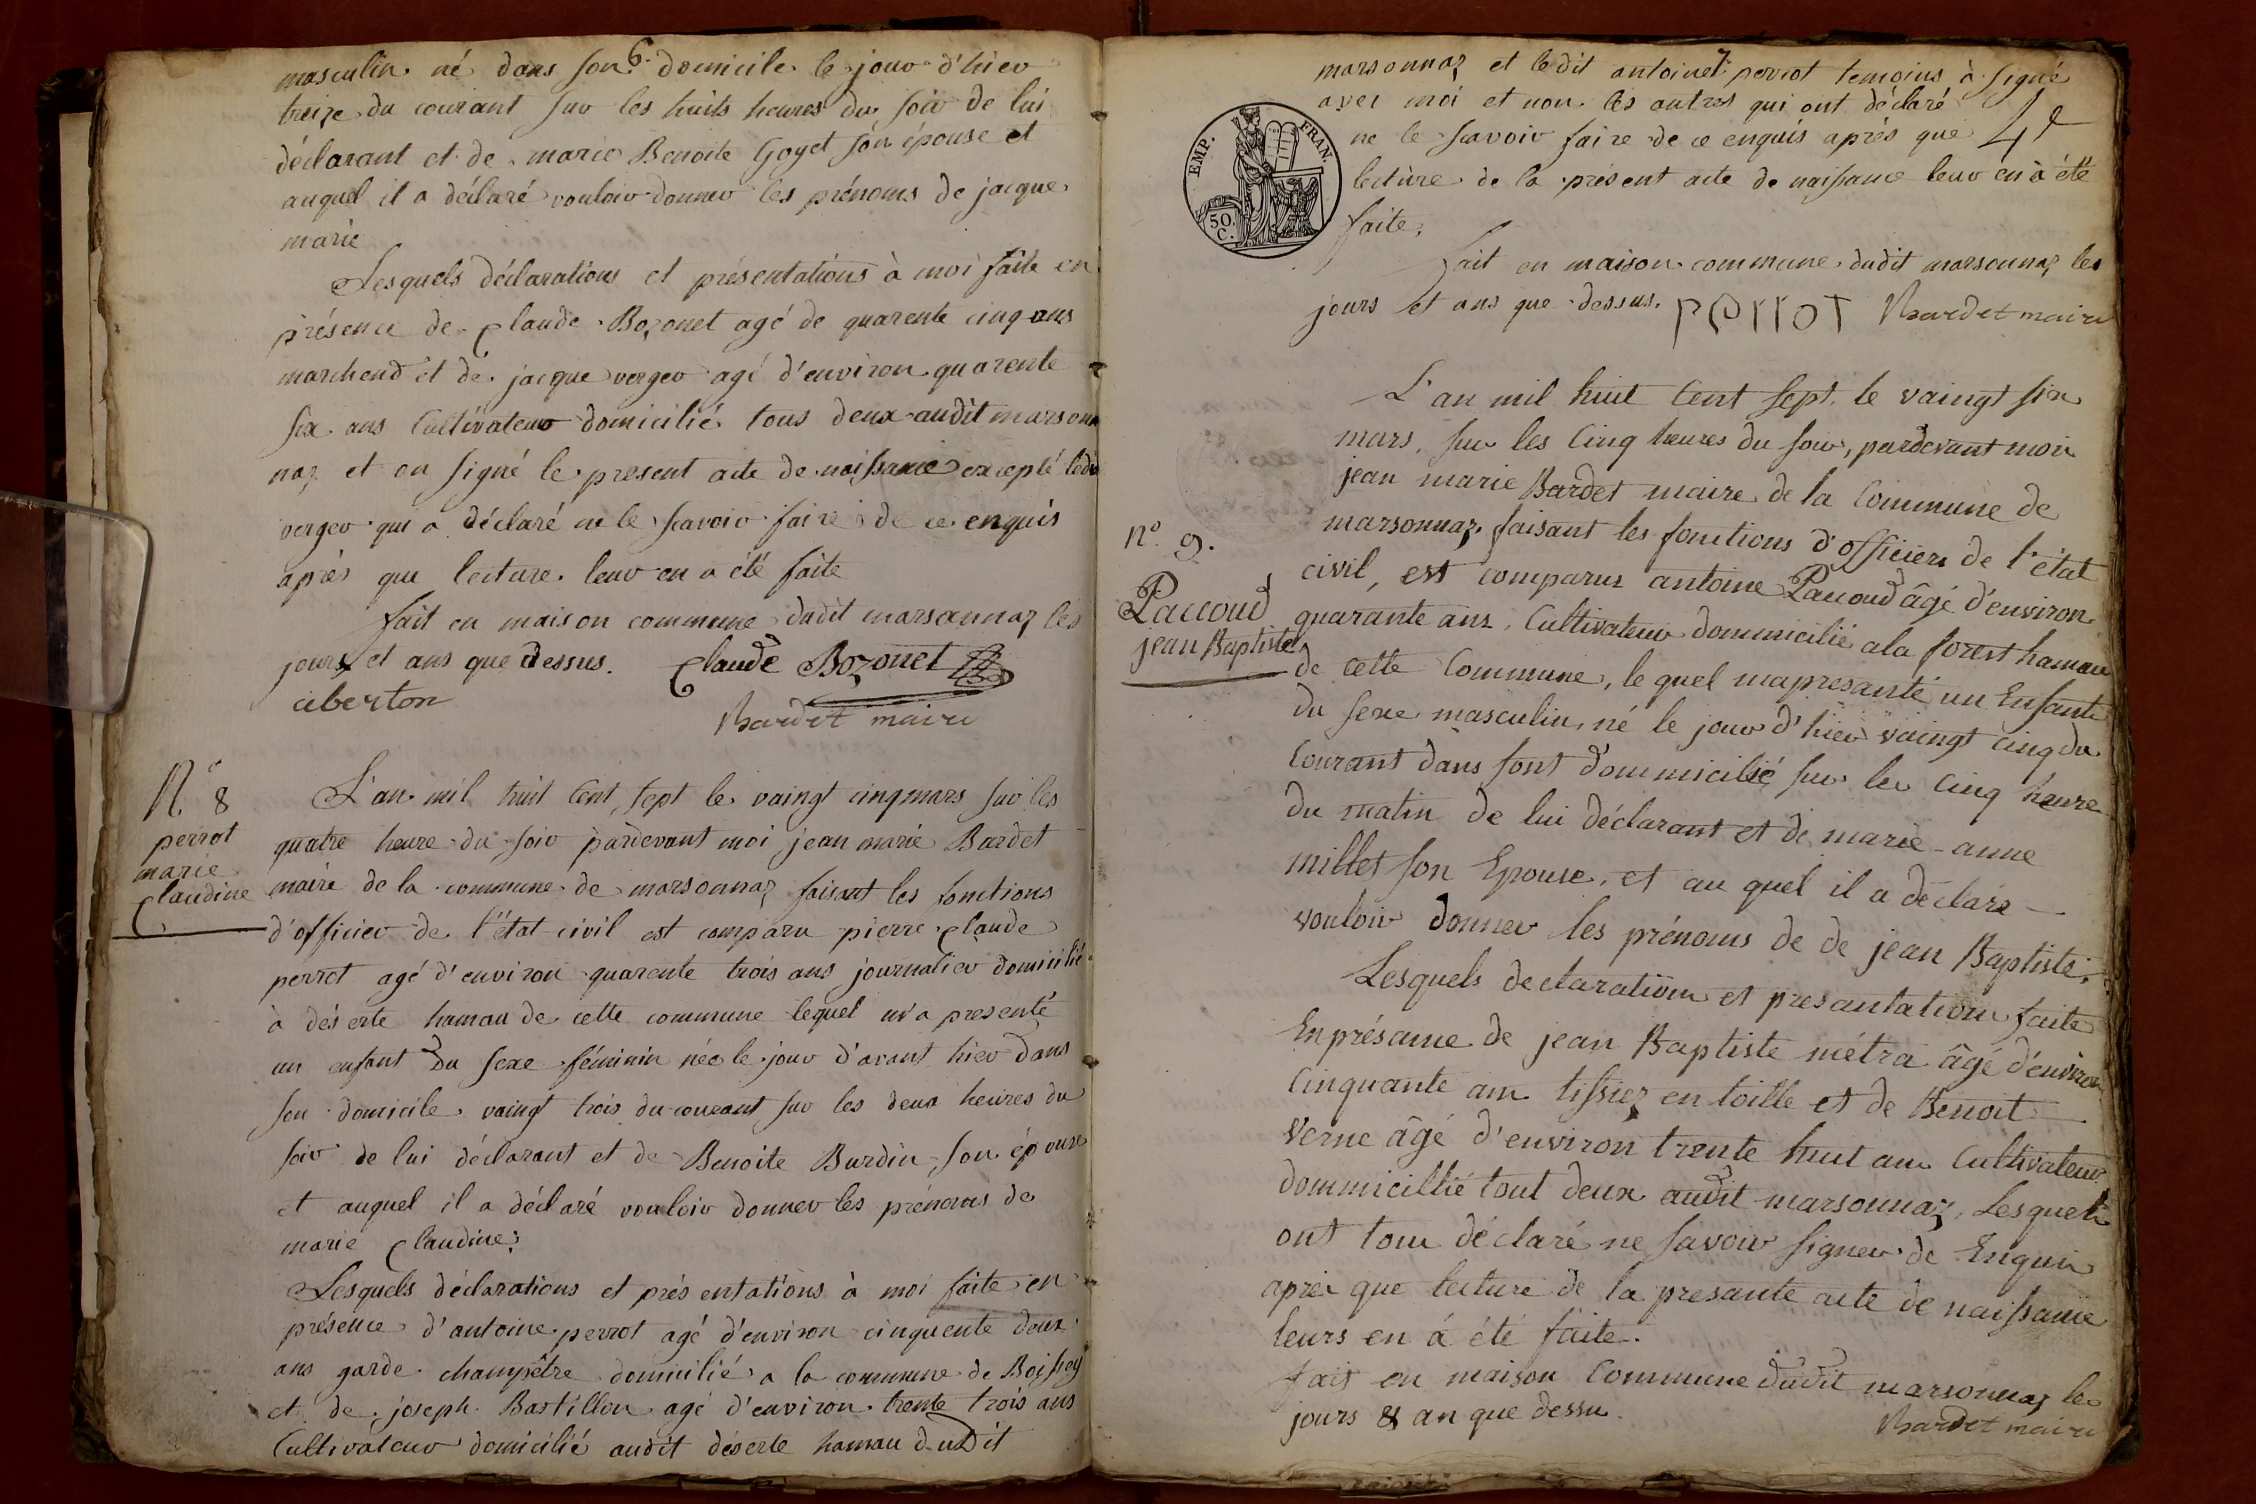 6.
masculin né dans son domicile le jour d'hier
treize du courant sur les huits heures du soir de lui
déclarant et de marie Benoite Goyet son épouse et
auquel il a déclaré vouloir donner les prénoms de jacque
marie
Lesquels déclarations et présentations à moi faite en
présence de Claude Bozonet agé de quarente cinq ans
marchend et de jacque verger agé d'environ quarente
six ans Cultivateur domicilié tous deux audit marson
naz et on signé le present acte de naissance excepté ledit
verger qui a déclaré ne le scavoir faire de ce enquis
après que lecture leur en a été faite
fait en maison commune dudit marsonnaz les
jours et ans que dessus. Claude Bozonet
ciberton
Bardet maire
N° 8
perrot
marie
Claudine
L'an mil huit Cent sept le vaingt cinq mars sur les
quatre heure du soir pardevant moi jean marie Bardet
maire de la commune de marsonnaz faisant les fonctions
d'officier de l'état civil est comparu pierre Claude
perrot agé d'environ quarente trois ans journalier domicilié
à déserte hamau de cette commune lequel m'a presenté
un enfant du sexe féminin née le jour d'avant hier dans
son domicile vaingt trois du courant sur les deux heures du
soir de lui déclarant et de Benoite Burdin son épouse
et auquel il a déclaré vouloir donner les prénoms de
marie Claudine;
Lesquels déclarations et présentations à moi faite en
présence d'antoine perrot agé d'environ cinquente deux
ans garde champêtre domicilié a la commune de Boissey
et de joseph Bastillon agé d'environ trente trois ans
Cultivateur domicilié audit déserte hamau dudit
7
marsonnaz et ledit antoinet perrot temoins à signé
avec moi et non les autres qui ont déclaré
ne le scavoir faire de ce enquis après que
lecture de la présent acte de naissance leur en à été
faite.
EMP. FRAN.
50. C.
fait en maison commune dudit marsonnaz les
jours et ans que dessus. perrot Bardet maire
N° 9.
Paccoud
jean Baptiste
L'an mil huit Cent sept, le vaingt six
mars, sur les Cinq heures du soir, pardevant moi
jean marie Bardet maire de la Commune de
marsonnaz faisant les fonctions d'officiers de l'état
civil, est comparus antoine Paccoud âgé d'environ
quarante ans, Cultivateur dommicilié ala forest hamau
de cette Commune, le quel mapresanté un Enfant
du sexe masculin, né le jour d'hier vaingt cinq du
Courant dans sont dommicilié sur les Cinq heure
du matin de lui déclarant et de marie-anne
millet son Epouse, et au quel il a déclaré
vouloir donner les prénoms de de jean Baptiste;
Lesquels declaration et presantation faite
En présance de jean Baptiste métra âgé d'environ
Cinquante ans tissiez en toille et de Benoit
verne âgé d'environ trente huit ans Cultivateur
dommicillié tout deux audit marsonnaz, Lesquels
ont tous déclaré ne savoir signer de Enquis
après que lecture de la presante acte de naissance
leurs en à été faite.
fait en maison Commune dudit marsonnaz les
jours & an que dessu.
Bardet maire